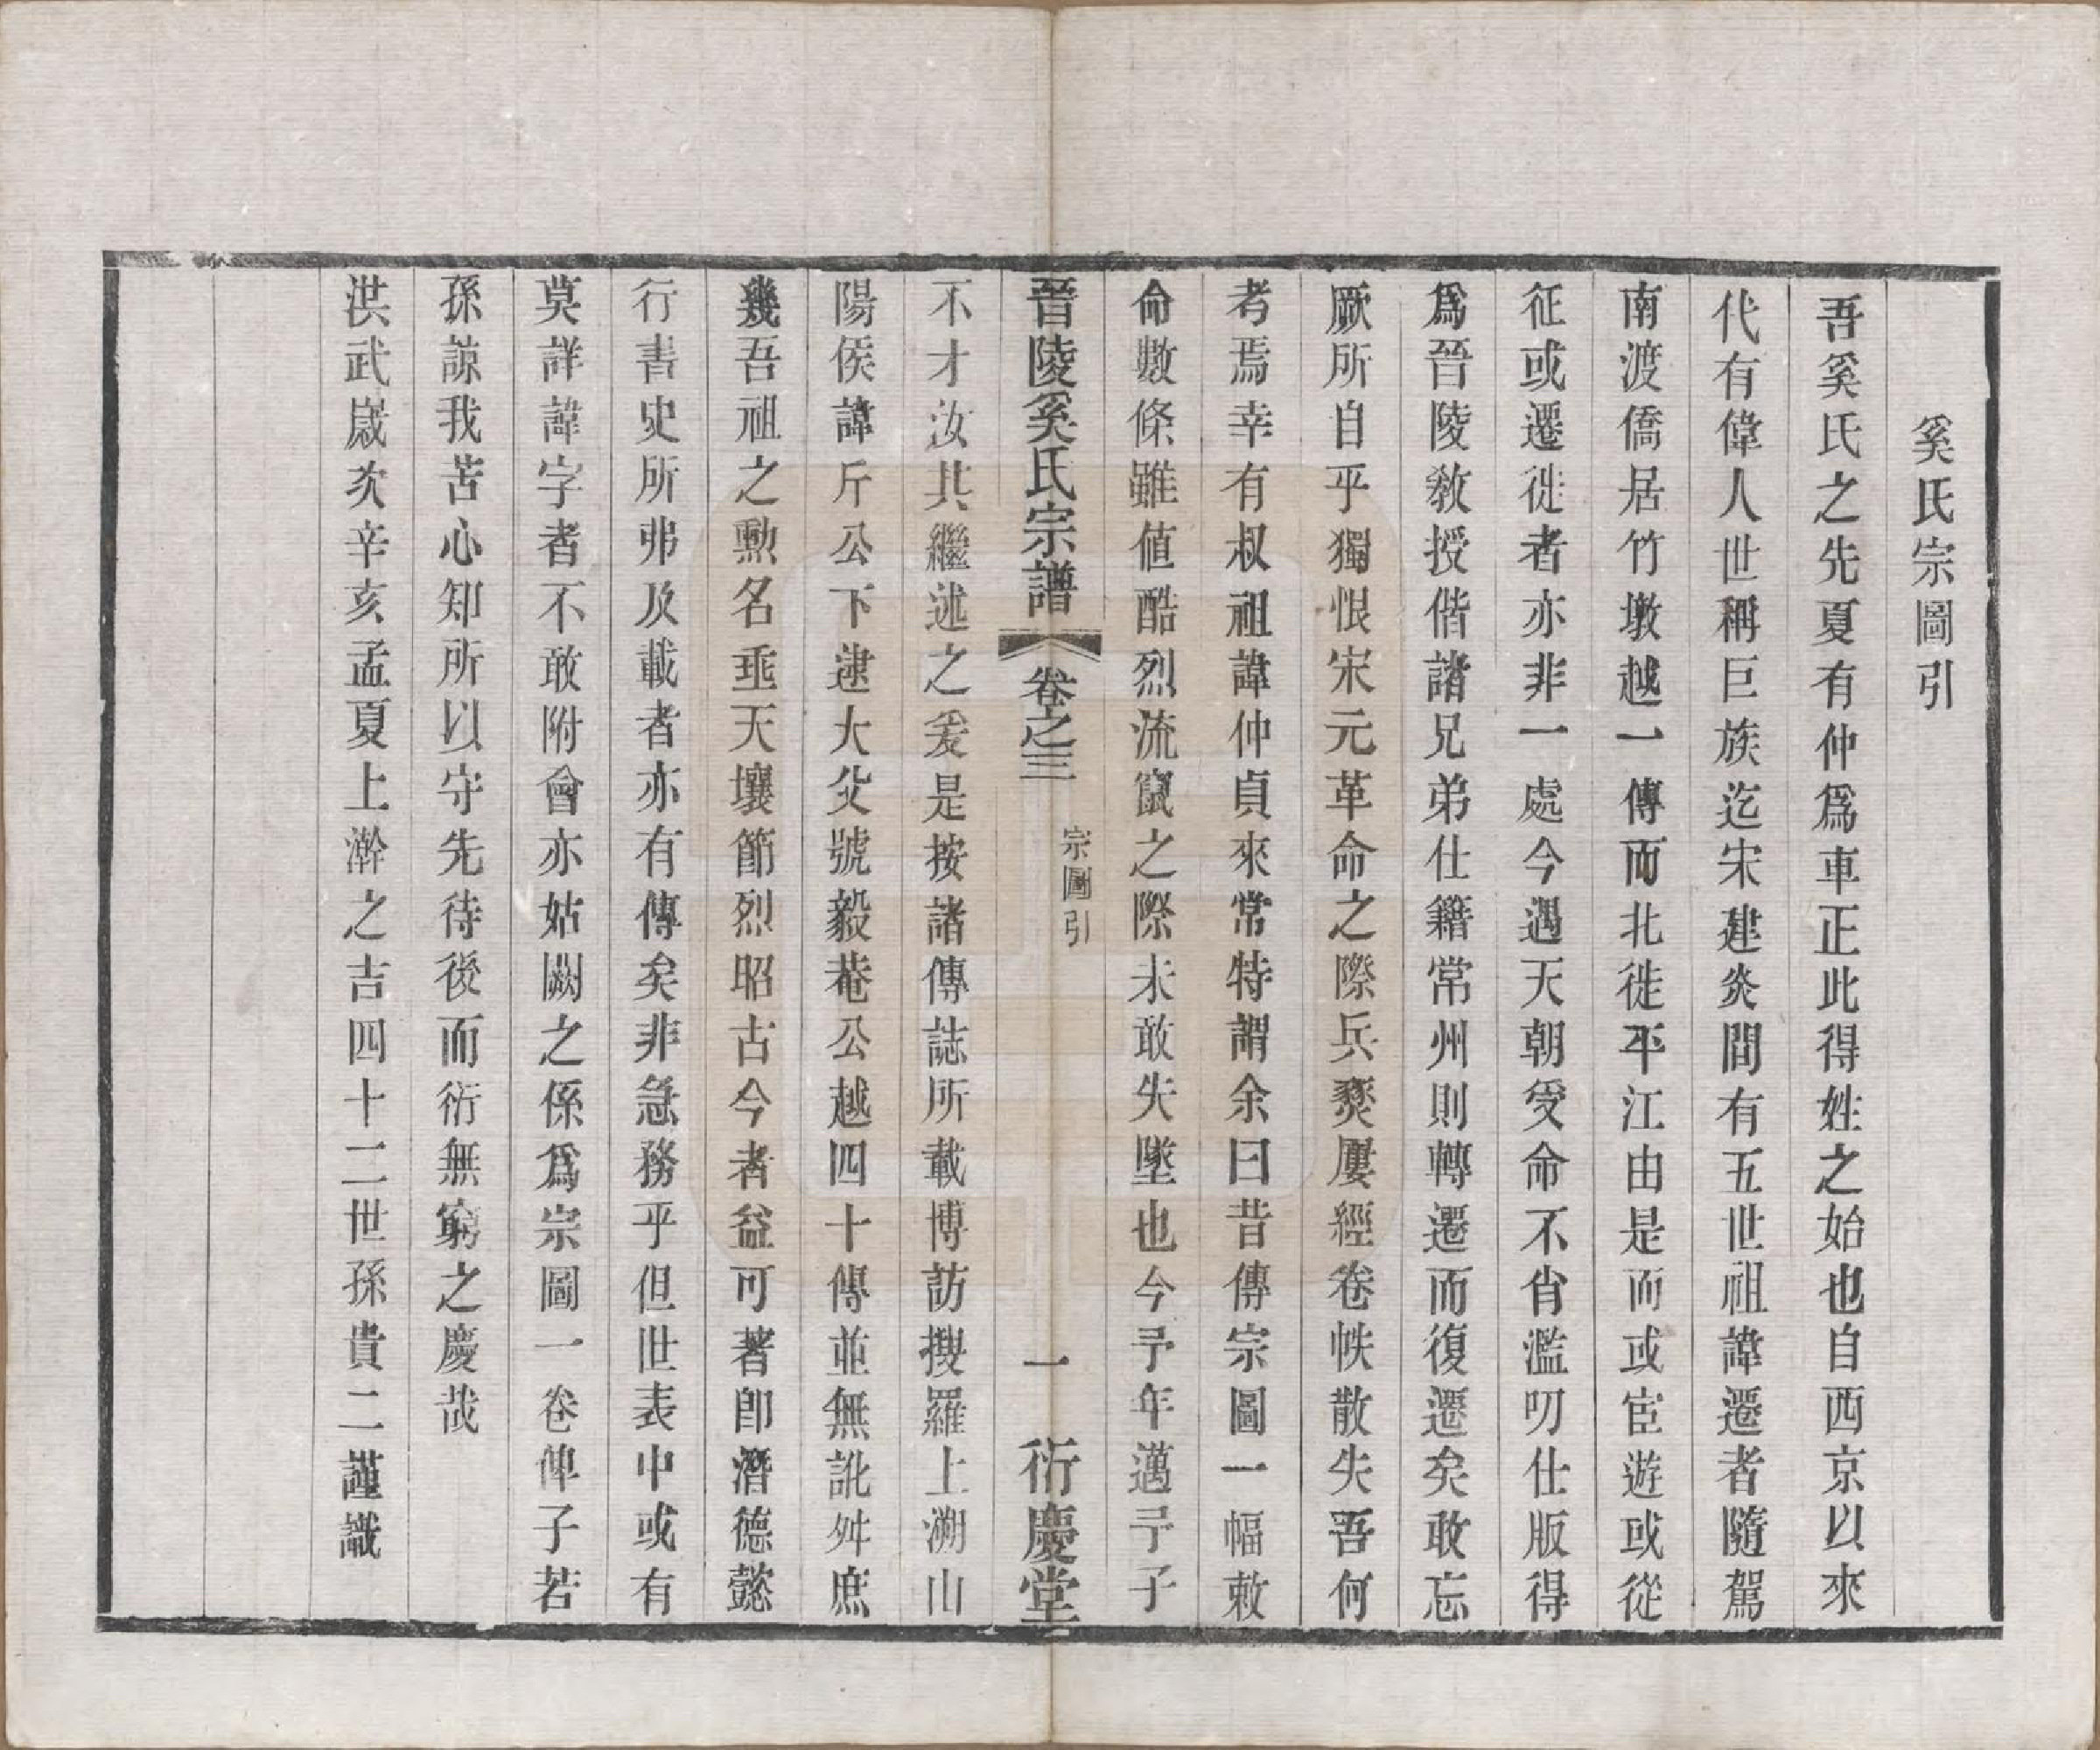 奚氏宗圖引
吾奚氏之先夏有仲爲車正此得姓之始也自西京以來
代有偉人世稱巨族迄宋建炎間有五世祖諱遷者隨駕
南渡僑居竹墩越一傳而北徙平江由是而或宦遊或從
征或遷徙者亦非一處今遇天朝受命不肖濫叨仕版得
爲晉陵敎授偕諸兄弟仕籍常州則轉遷而復遷矣敢忘
厥所自乎獨恨宋元革命之際兵燹屢經卷帙散失吾何
考焉幸有叔祖諱仲貞來常特謂余曰昔傳宗圖一幅敕
命數條雖値酷烈流竄之際未敢失墜也今予年邁予子
晉陵奚氏宗譜 卷之三 宗圖引 一 衍慶堂
不才汝其繼述之爰是按諸傳誌所載博訪搜羅上溯山
陽侯諱斤公下逮大父號毅菴公越四十傳並無訛舛庶
幾吾祖之勲名垂天壤節烈昭古今者益可著卽潛德懿
行書史所弗及載者亦有傳矣非急務乎但世表中或有
莫詳諱字者不敢附會亦姑闕之係爲宗圖一卷俾子若
孫諒我苦心知所以守先待後而衍無窮之慶哉
洪武歲次辛亥孟夏上澣之吉四十二世孫貴二謹識